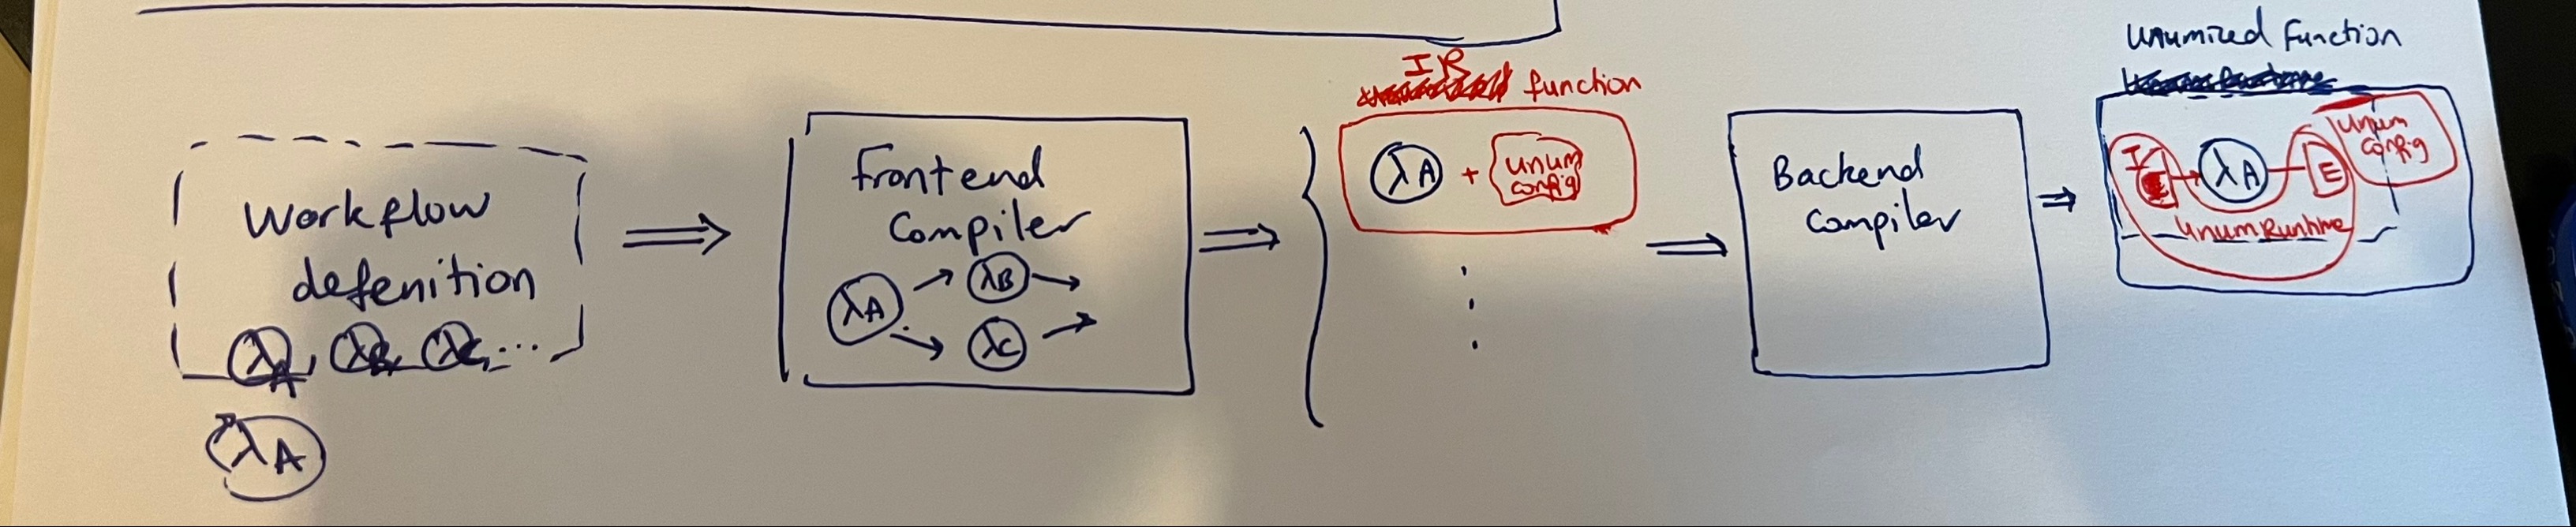 Workflow
defenition
λA, λB, λC, ...
λA
Frontend
Compiler
λA
λB
λC
IR
function
λA + unum
config
Backend
Compiler
Unumized Function
I λA E
Unum
Config
Unum Runtime